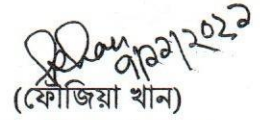 ৭/১১/২০২২
(ফৌজিয়া খান)